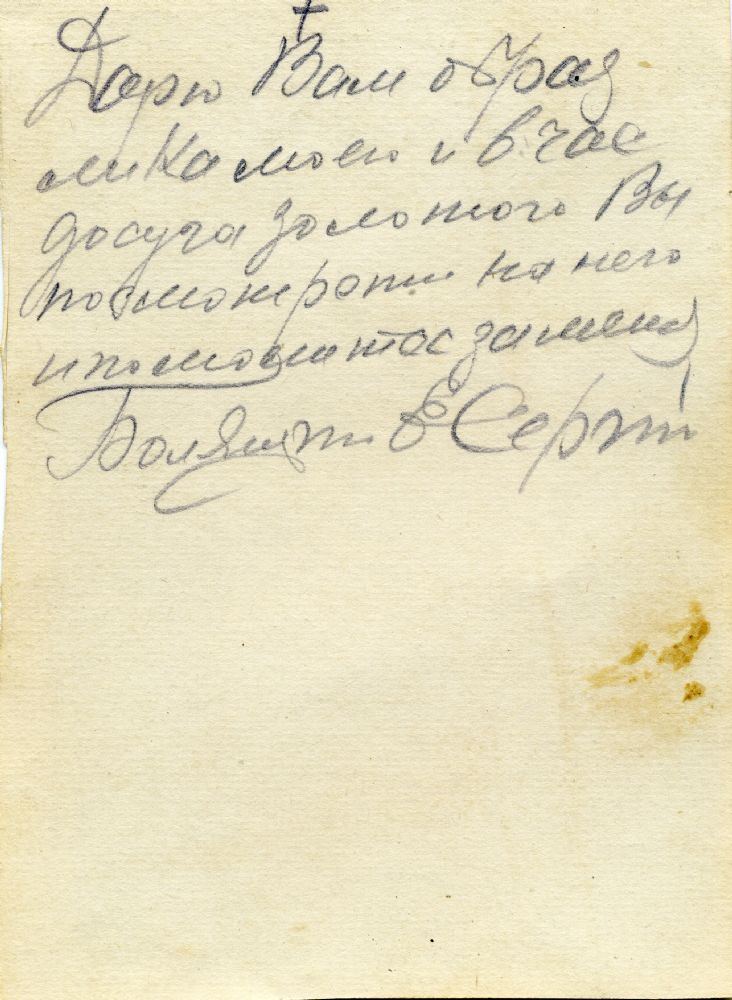 Дарю Вам образ
лика моего и в час
досуга золотого Вы
посмотрите на него
и помолитес за меня
Е Сергий